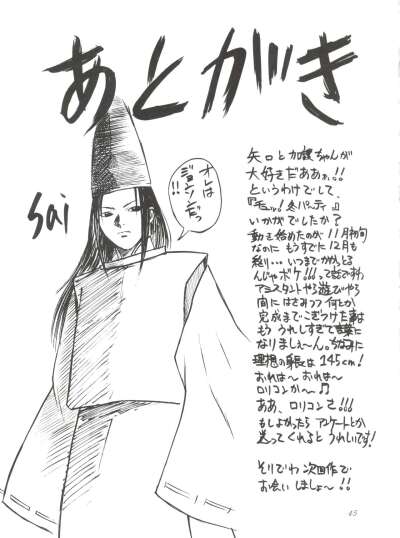 あとがき
sai
オレは
ジョウノだっ
!!
矢口と加護ちゃんが
大好きだああぁ。!!
というわけでして、
『モッ!冬パーティ』
いかがでしたか?
動き始めたのが11月初旬
なのに もうすでに12月も
終り… いつまでかかっとる
んじゃボケ!!!って話ですわ
アシスタントやら遊びやら
間にはさみつつ 何とか
完成までこぎつけた事は
もう うれしすぎて言葉に
なりましぇ〜ん。ちなみに
理想の身長は 145cm!
おれは〜 おれは〜
ロリコンか〜♫
ああ、ロリコンさ!!!
もしよかったら アンケートとか
送ってくれると うれしいです!
そりでわ 次回作で
お会い しましょ〜!!